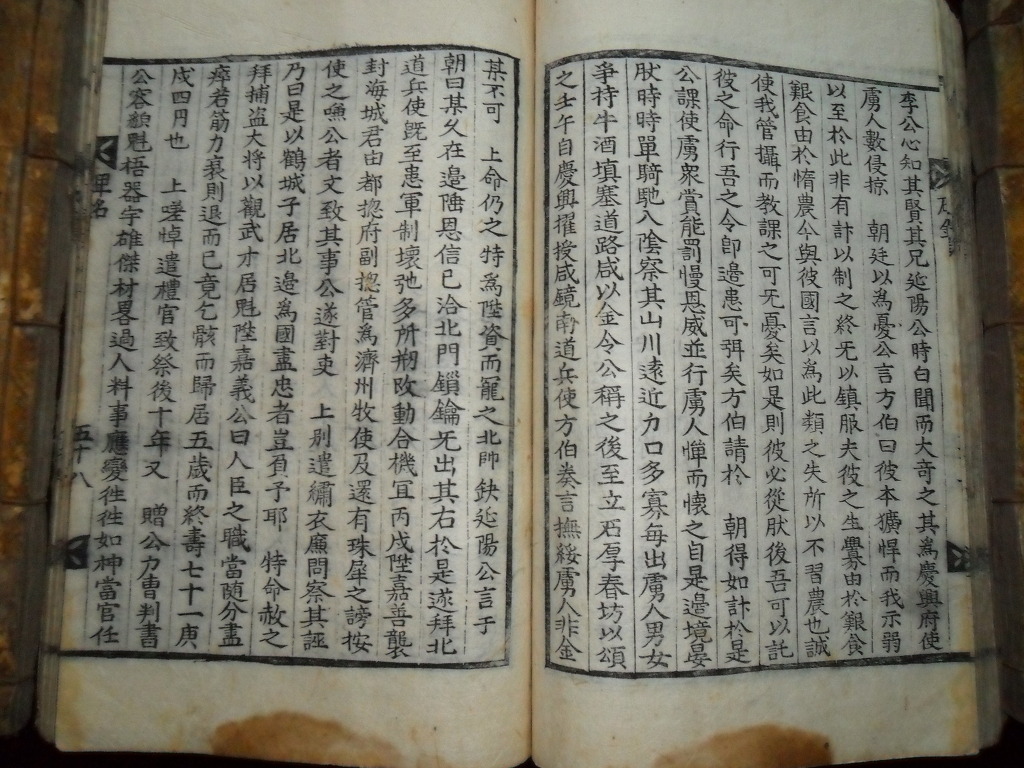 李公心知其賢其兄延陽公時白聞而大奇之其爲慶興府使
虜人數侵掠 朝廷以爲憂公言方伯曰彼本獷悍而我示弱
以至於此非有計以制之終无以鎭服夫彼之生釁由於艱食
艱食由於惰農今與彼國言以爲此類之失所以不習農也誠
使我管攝而教課之可无憂矣如是則彼必從肰後吾可以託
彼之命行吾之令卽邊患可弭矣方伯請於 朝得如計於是
公課使虜衆賞能罰慢恩威並行虜人憚而懷之自是邊境晏
肰時時單騎馳入陰察其山川遠近力口多寡每出虜人男女
爭持牛酒填塞道路咸以金令公稱之後至立石厚春坊以頌
之壬午自慶興擢授咸鏡南道兵使方伯奏言撫綏虜人非金
某不可 上命仍之特爲陞資而寵之北帥缺延陽公言于
朝曰某久在邊陲恩信已洽北門鎖鑰无出其右於是遂拜北
道兵使旣至患軍制壞弛多所刱改動合機宜丙戌陞嘉善襲
封海城君由都摠府副摠管爲濟州牧使及還有珠犀之謗按
使之嗛公者文致其事公遂對吏 上別遣繡衣廉問察其誣
乃曰是以鶴城子居北邊爲國盡忠者豈負予耶 特命赦之
拜捕盜大將以觀武才居魁陞嘉義公曰人臣之職當隨分盡
瘁若筋力衰則退而已竟乞骸而歸居五歲而終壽七十一庚
戌四月也 上嗟悼遣禮官致祭後十年又 贈公力曺判書
公容貌魁梧器宇雄傑材畧過人料事應變徃徃如神當官任
五十八